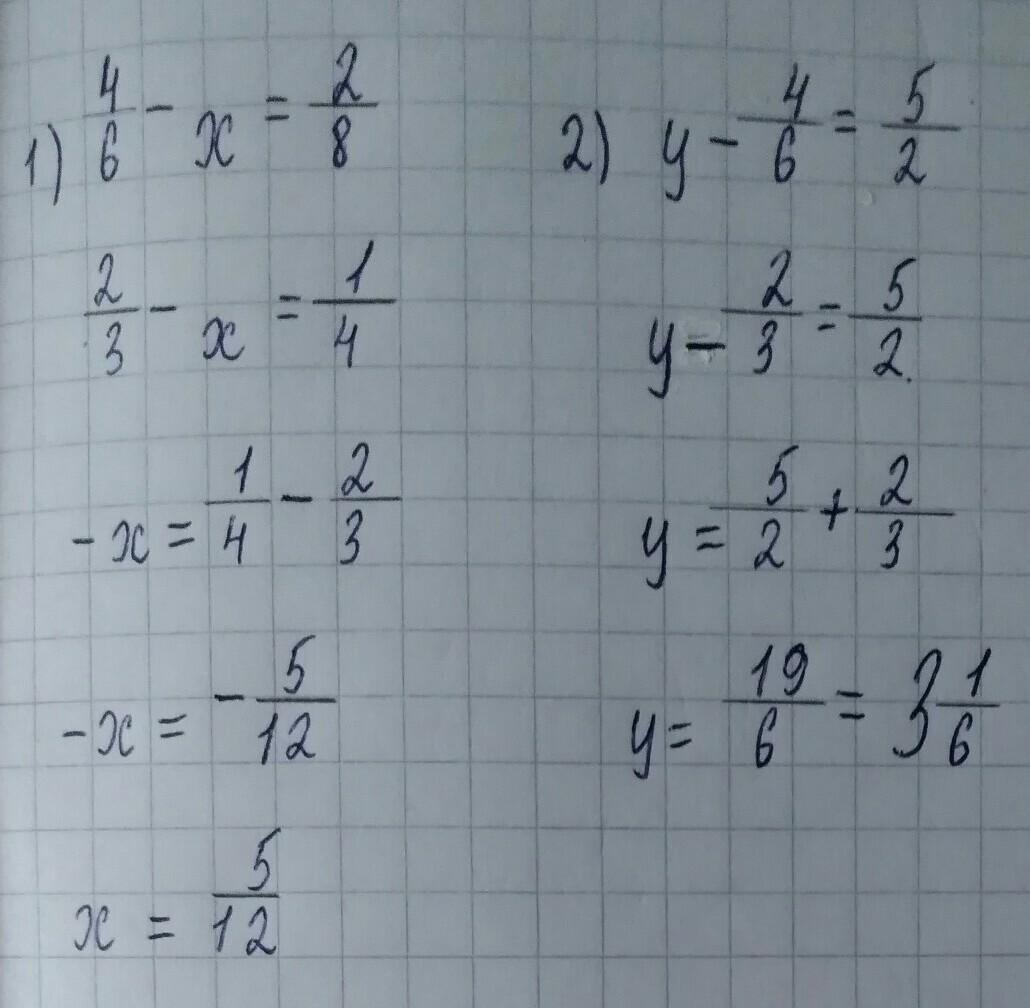 1) 4/6 - x = 2/8
2/3 - x = 1/4
-x = 1/4 - 2/3
-x = -5/12
x = 5/12
2) y - 4/6 = 5/2
y - 2/3 = 5/2
y = 5/2 + 2/3
y = 19/6 = 3 1/6